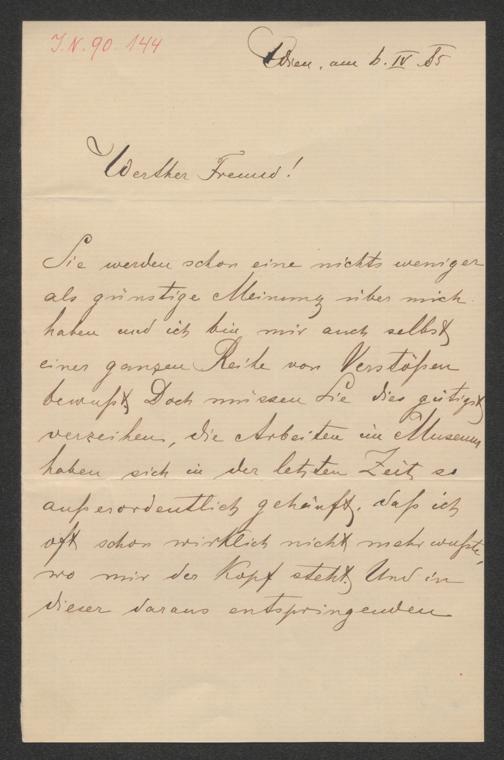 J.N. 90.144
Wien, am 6. IV. 85
Werther Freund!
Sie werden schon eine nichts weniger
als günstige Meinung über mich
haben und ich bin mir auch selbst
einer ganzen Reihe von Verstößen
bewußt. Doch müssen Sie dies gütigst
verzeihen, die Arbeiten im Museum
haben sich in der letzten Zeit so
außerordentlich gehäuft, daß ich
oft schon wirklich nicht mehr wußte,
wo mir der Kopf steht. Und in
dieser daraus entspringenden